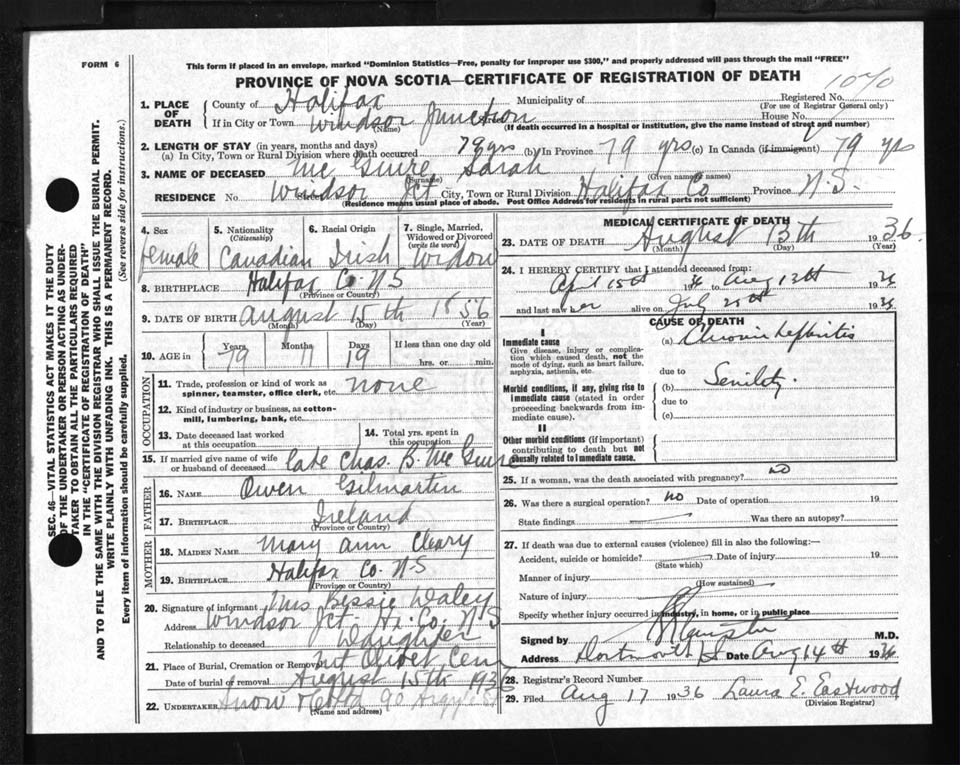 FORM 6
This form if placed in an envelope, marked "Dominion Statistics—Free, penalty for improper use $300," and properly addressed will pass through the mail "FREE"
PROVINCE OF NOVA SCOTIA—CERTIFICATE OF REGISTRATION OF DEATH
1. PLACE OF DEATH County of Halifax Municipality of Registered No. 1070
(For use of Registrar General only)
If in City or Town Windsor Junction House No.
(Name) (If death occurred in a hospital or institution, give the name instead of street and number)
2. LENGTH OF STAY (in years, months and days)
(a) In City, Town or Rural Division where death occurred 79 yrs (b) In Province 79 yrs (c) In Canada (if immigrant) 79 yrs
3. NAME OF DECEASED Mc Guire Sarah
(Surname) (Given name or names)
RESIDENCE No. Windsor Jct Street City, Town or Rural Division Halifax Co Province N.S.
(Residence means usual place of abode. Post Office Address for residents in rural parts not sufficient)
4. Sex 5. Nationality (Citizenship) 6. Racial Origin 7. Single, Married, Widowed or Divorced (write the word)
female Canadian Irish Widow
8. BIRTHPLACE Halifax Co. N S
(Province or Country)
9. DATE OF BIRTH August 15th 1856
(Month) (Day) (Year)
10. AGE in Years Months Days If less than one day old
79 11 19 hrs. or min.
OCCUPATION
11. Trade, profession or kind of work as spinner, teamster, office clerk, etc. none
12. Kind of industry or business, as cotton-mill, lumbering, bank, etc.
13. Date deceased last worked at this occupation 14. Total yrs. spent in this occupation
15. If married give name of wife or husband of deceased late Chas. B. Mc Guire
FATHER
16. Name Owen Gilmartin
17. BIRTHPLACE Ireland
(Province or Country)
MOTHER
18. MAIDEN NAME Mary Ann Cleary
19. BIRTHPLACE Halifax Co. N.S
(Province or Country)
20. Signature of informant Mrs Bessie Daley
Address Windsor Jct. Hx. Co. N S
Relationship to deceased Daughter
21. Place of Burial, Cremation or Removal Mt Olivet Cem
Date of burial of removal August 15th 1936
22. UNDERTAKER Snow 90 Argyle St
(Name and address)
MEDICAL CERTIFICATE OF DEATH
23. DATE OF DEATH August 13th 1936
(Month) (Day) (Year)
24. I HEREBY CERTIFY that I attended deceased from:
April 15th 36 to Aug 13th 1936
and last saw her alive on July 1936
CAUSE OF DEATH
I
Immediate cause
Give disease, injury or complication which caused death, not the mode of dying, such as heart failure, asphyxia, asthenia, etc.
(a) Chronic Nephritis
due to
Morbid conditions, if any, giving rise to immediate cause (stated in order proceeding backwards from immediate cause).
(b) Senility.
due to
(c)
II
Other morbid conditions (if important) contributing to death but not causally related to immediate cause.
25. If a woman, was the death associated with pregnancy? no
26. Was there a surgical operation? no Date of operation 19
State findings Was there an autopsy?
27. If death was due to external causes (violence) fill in also the following:—
Accident, suicide or homicide? Date of injury 19
(State which)
Manner of injury
(How sustained)
Nature of injury
Specify whether injury occurred in industry, in home, or in public place
Signed by M.D.
Address Dartmouth NS Date Aug 14th 1936
28. Registrar's Record Number
29. Filed Aug 17 1936 Laura E. Eastwood
(Division Registrar)
SEC. 46—VITAL STATISTICS ACT MAKES IT THE DUTY
OF THE UNDERTAKER OR PERSON ACTING AS UNDER-
TAKER TO OBTAIN ALL THE PARTICULARS REQUIRED
IN THE "CERTIFICATE OF REGISTRATION OF DEATH"
AND TO FILE THE SAME WITH THE DIVISION REGISTRAR WHO SHALL ISSUE THE BURIAL PERMIT.
WRITE PLAINLY WITH UNFADING INK. THIS IS A PERMANENT RECORD.
Every item of information should be carefully supplied. (See reverse side for instructions.)